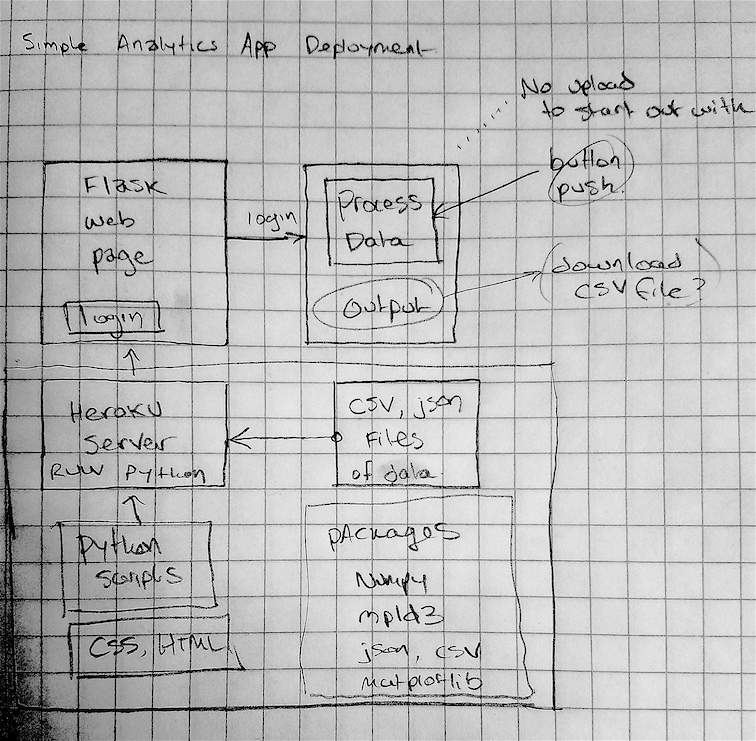 Simple Analytics App Deployment
No upload
to start out with
button
push
Flask
web
page
login
login
Process
Data
output
download
CSV file?
Heroku
Server
RUN Python
CSV, json
Files
of data
python
scripts
CSS, HTML
pAckages
Numpy
mpld3
json, csv
matplotlib